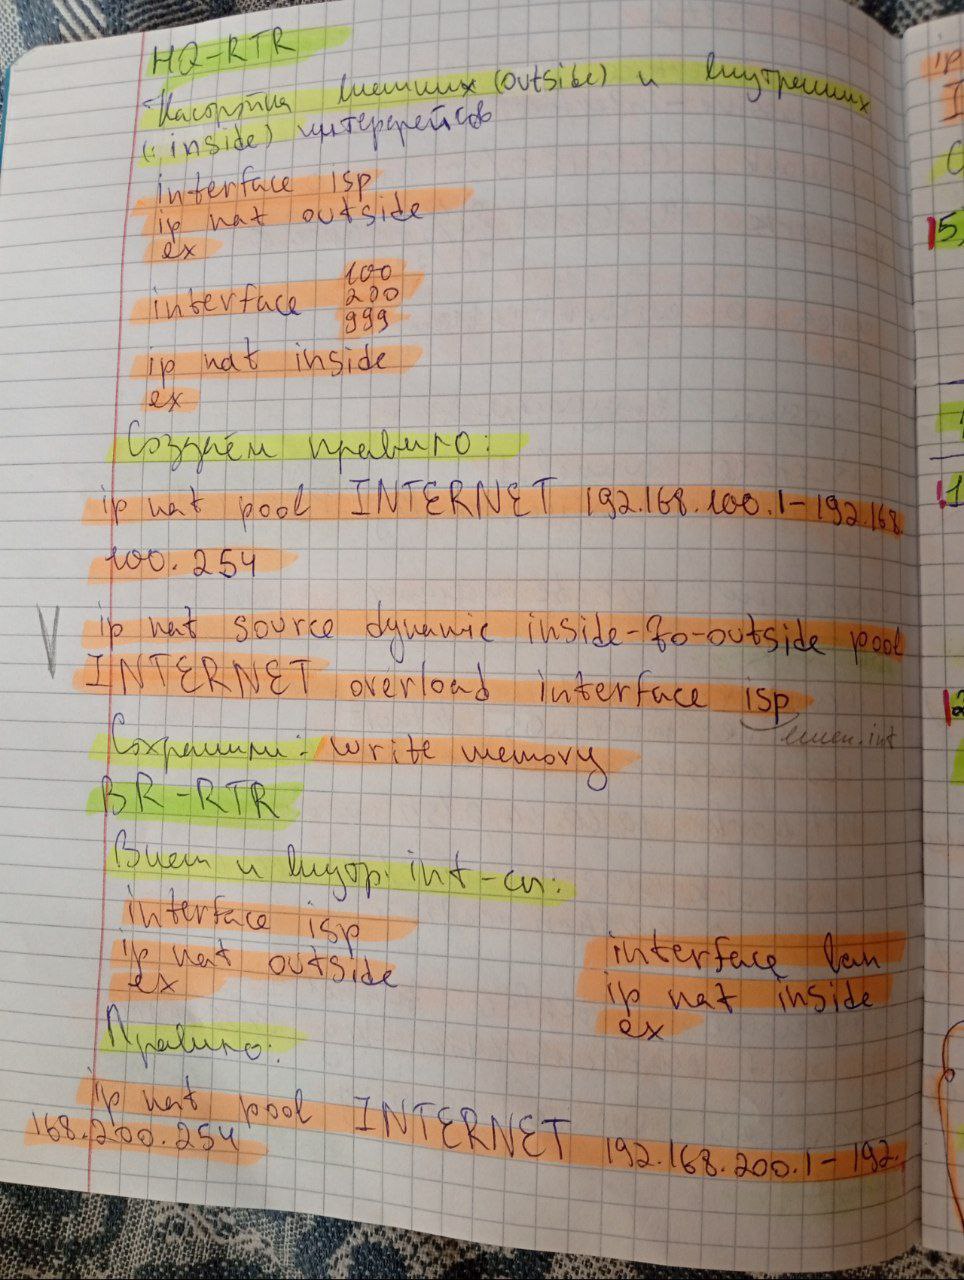 HQ-RTR
Настройка внешних (outside) и внутренних
(inside) интерфейсов
interface isp
ip nat outside
ex
100
interface 200
999
ip nat inside
ex
Создаём правило:
ip nat pool INTERNET 192.168.100.1-192.168
100.254
ip nat source dynamic inside-to-outside pool
INTERNET overload interface isp
внеш. int
Сохранили: write memory
BR-RTR
Внеш и внутр. int-сы:
interface isp
ip nat outside
ex
interface lan
ip nat inside
ex
Правило:
ip nat pool INTERNET 192.168.200.1-192.
168.200.254
ip
I
5.
1
2